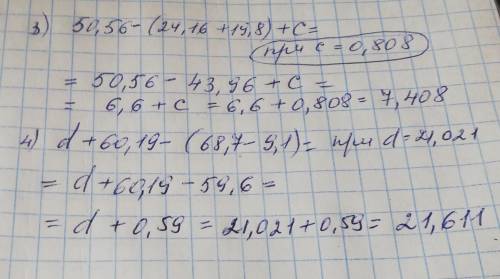 3) 50,56 - (24,16 + 19,8) + c =
при c = 0,808
= 50,56 - 43,96 + c =
= 6,6 + c = 6,6 + 0,808 = 7,408
4) d + 60,19 - (68,7 - 9,1) = при d = 21,021
= d + 60,19 - 59,6 =
= d + 0,59 = 21,021 + 0,59 = 21,611